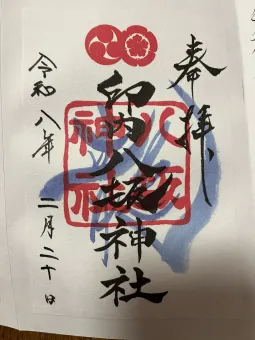 奉拝
印内八坂神社
八坂
神社
令和八年 二月二十日